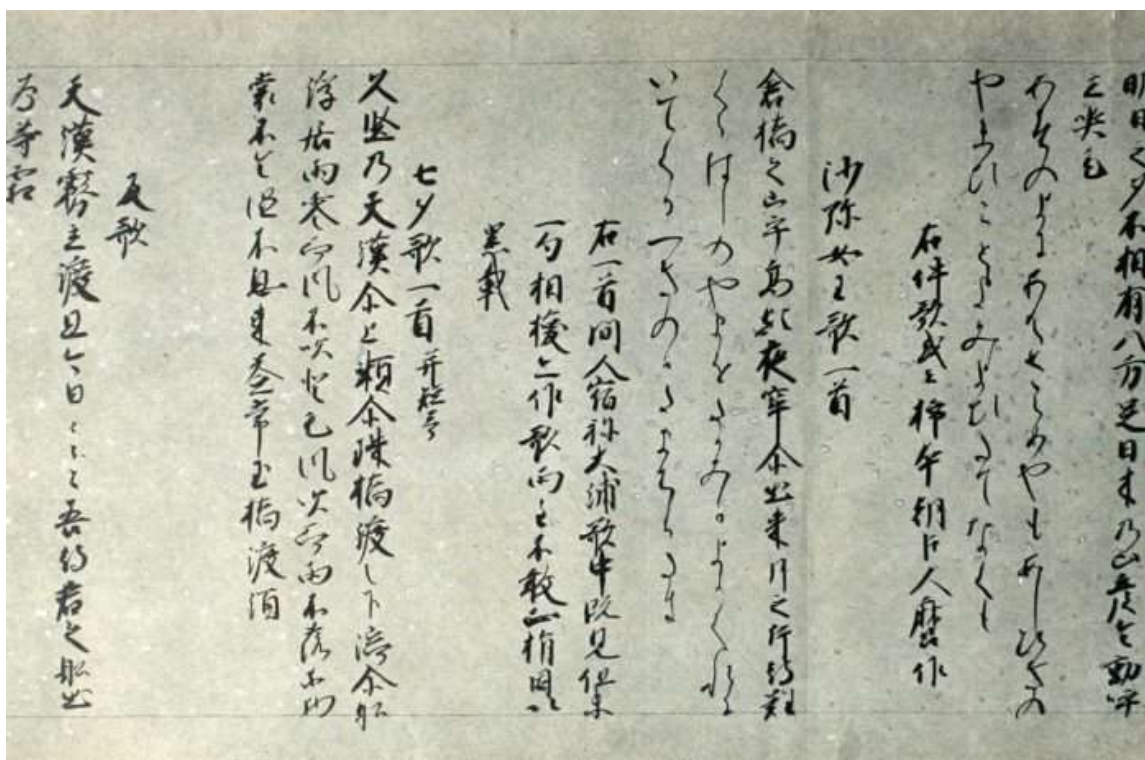 明日之夕不相有八方足日木乃山彦令動呼
立哭毛
あすのよひあはさらめやもあしひきの
やまひことよみよひたてなくも
右件歌或云柿本朝臣人麿作
沙弥女王歌一首
倉橋之山乎高歟夜牢尓出来月之片待難
くらはしのやまをたかみかよこもりに
いてくるつきのかたまちかたき
右一首間人宿祢大浦歌中既見但末
一句相換亦作歌両主不敢正指因以
累載
七夕歌一首并短哥
久堅乃天漢尓上頼尓珠橋渡之下湍尓船
浮居雨零而風不吹登毛風吹而雨不落等物
裳不令湿不息来益常玉橋渡須
反歌
天漢霧立渡且今日々々々吾待君之船出
為等霜